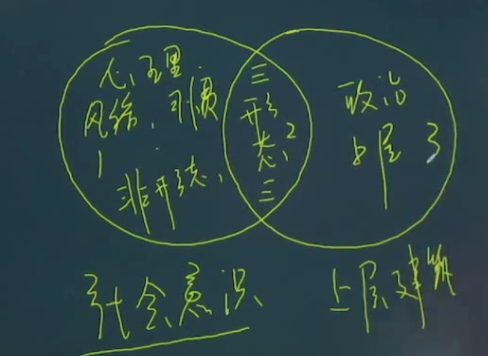 心理
风俗、习惯
1
非形态、
三
形
态、2
三
政治
上层 3
社会意识
上层建筑